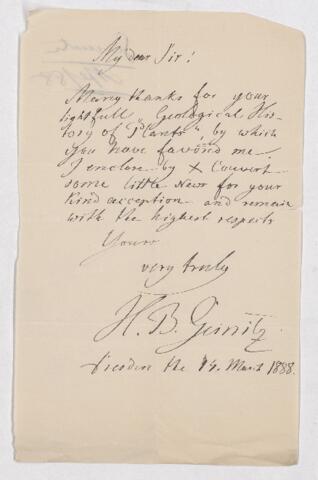 My dear Sir!
Many thanks for your
lightfull „Geological His-
tory of Plants", by which
you have favored me.
I enclose by X Couvert
some little News for your
kind acception and remain
with the highest respects
Yours
very truly
H. B. Geinitz
Dresden the 14. March 1888.